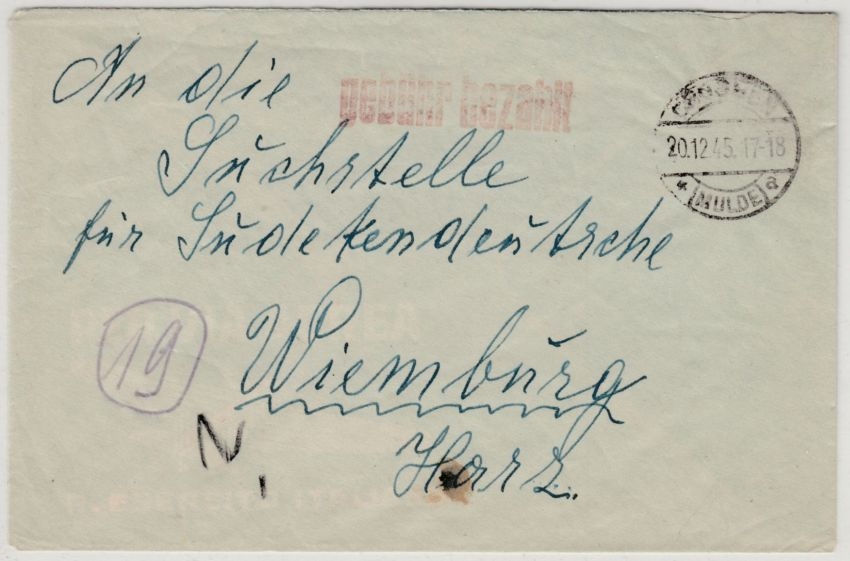 An die
Gebühr bezahlt
Suchstelle
für Sudetendeutsche
20.12.45.17-18
* (MULDE) a
19
Wiemburg
N,
Harz.